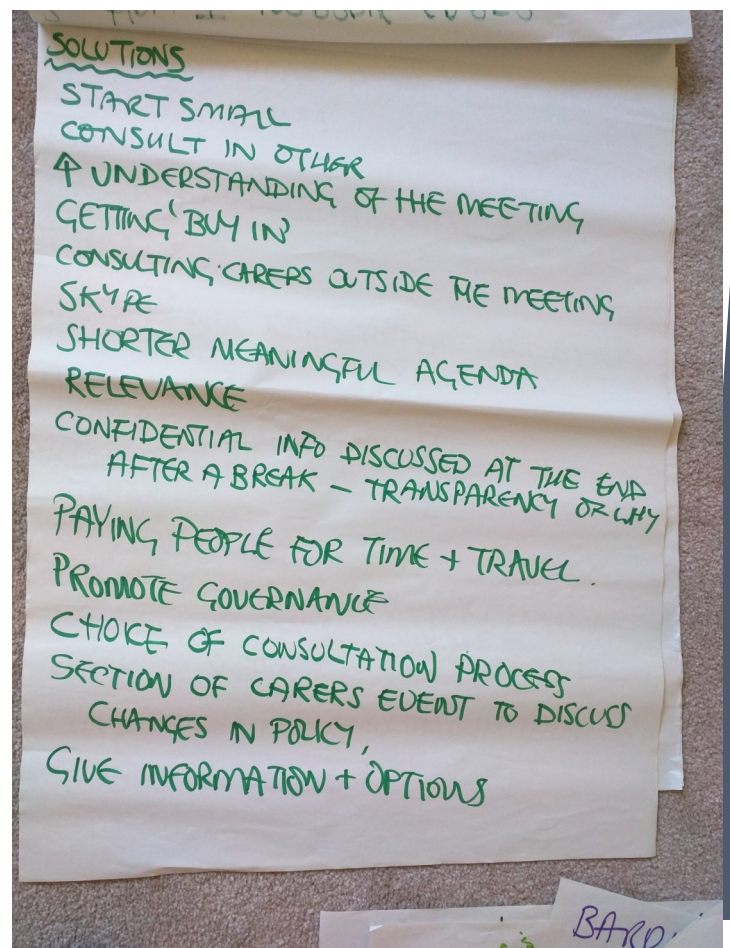 SOLUTIONS
START SMALL
CONSULT IN OTHER
↑ UNDERSTANDING OF THE MEETING
GETTING 'BUY IN'
CONSULTING CARERS OUTSIDE THE MEETING
SKYPE
SHORTER MEANINGFUL AGENDA
RELEVANCE
CONFIDENTIAL INFO DISCUSSED AT THE END
AFTER A BREAK - TRANSPARENCY OF WHY
PAYING PEOPLE FOR TIME + TRAVEL.
PROMOTE GOVERNANCE
CHOICE OF CONSULTATION PROCESS
SECTION OF CARERS EVENT TO DISCUSS
CHANGES IN POLICY,
GIVE INFORMATION + OPTIONS